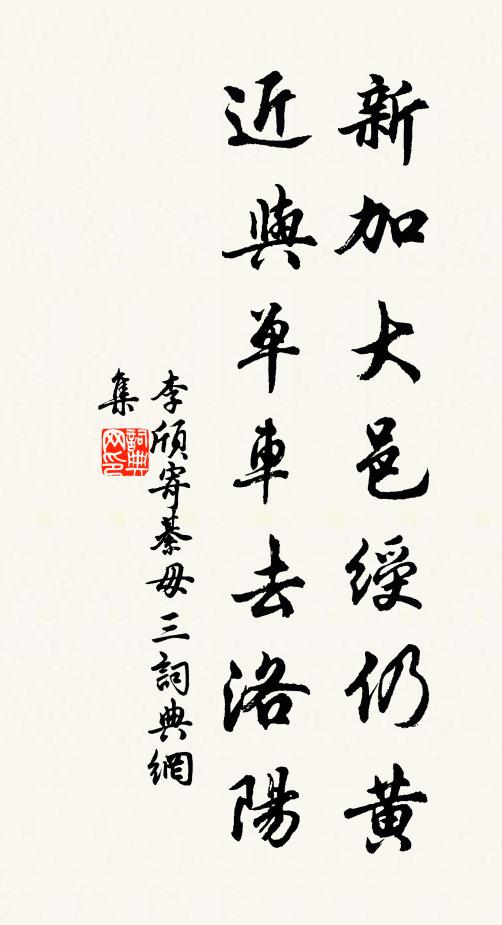 新加大邑綬仍黃
近與单車去洛陽
李頎寄綦毋三詞典網
集
詞典
网印